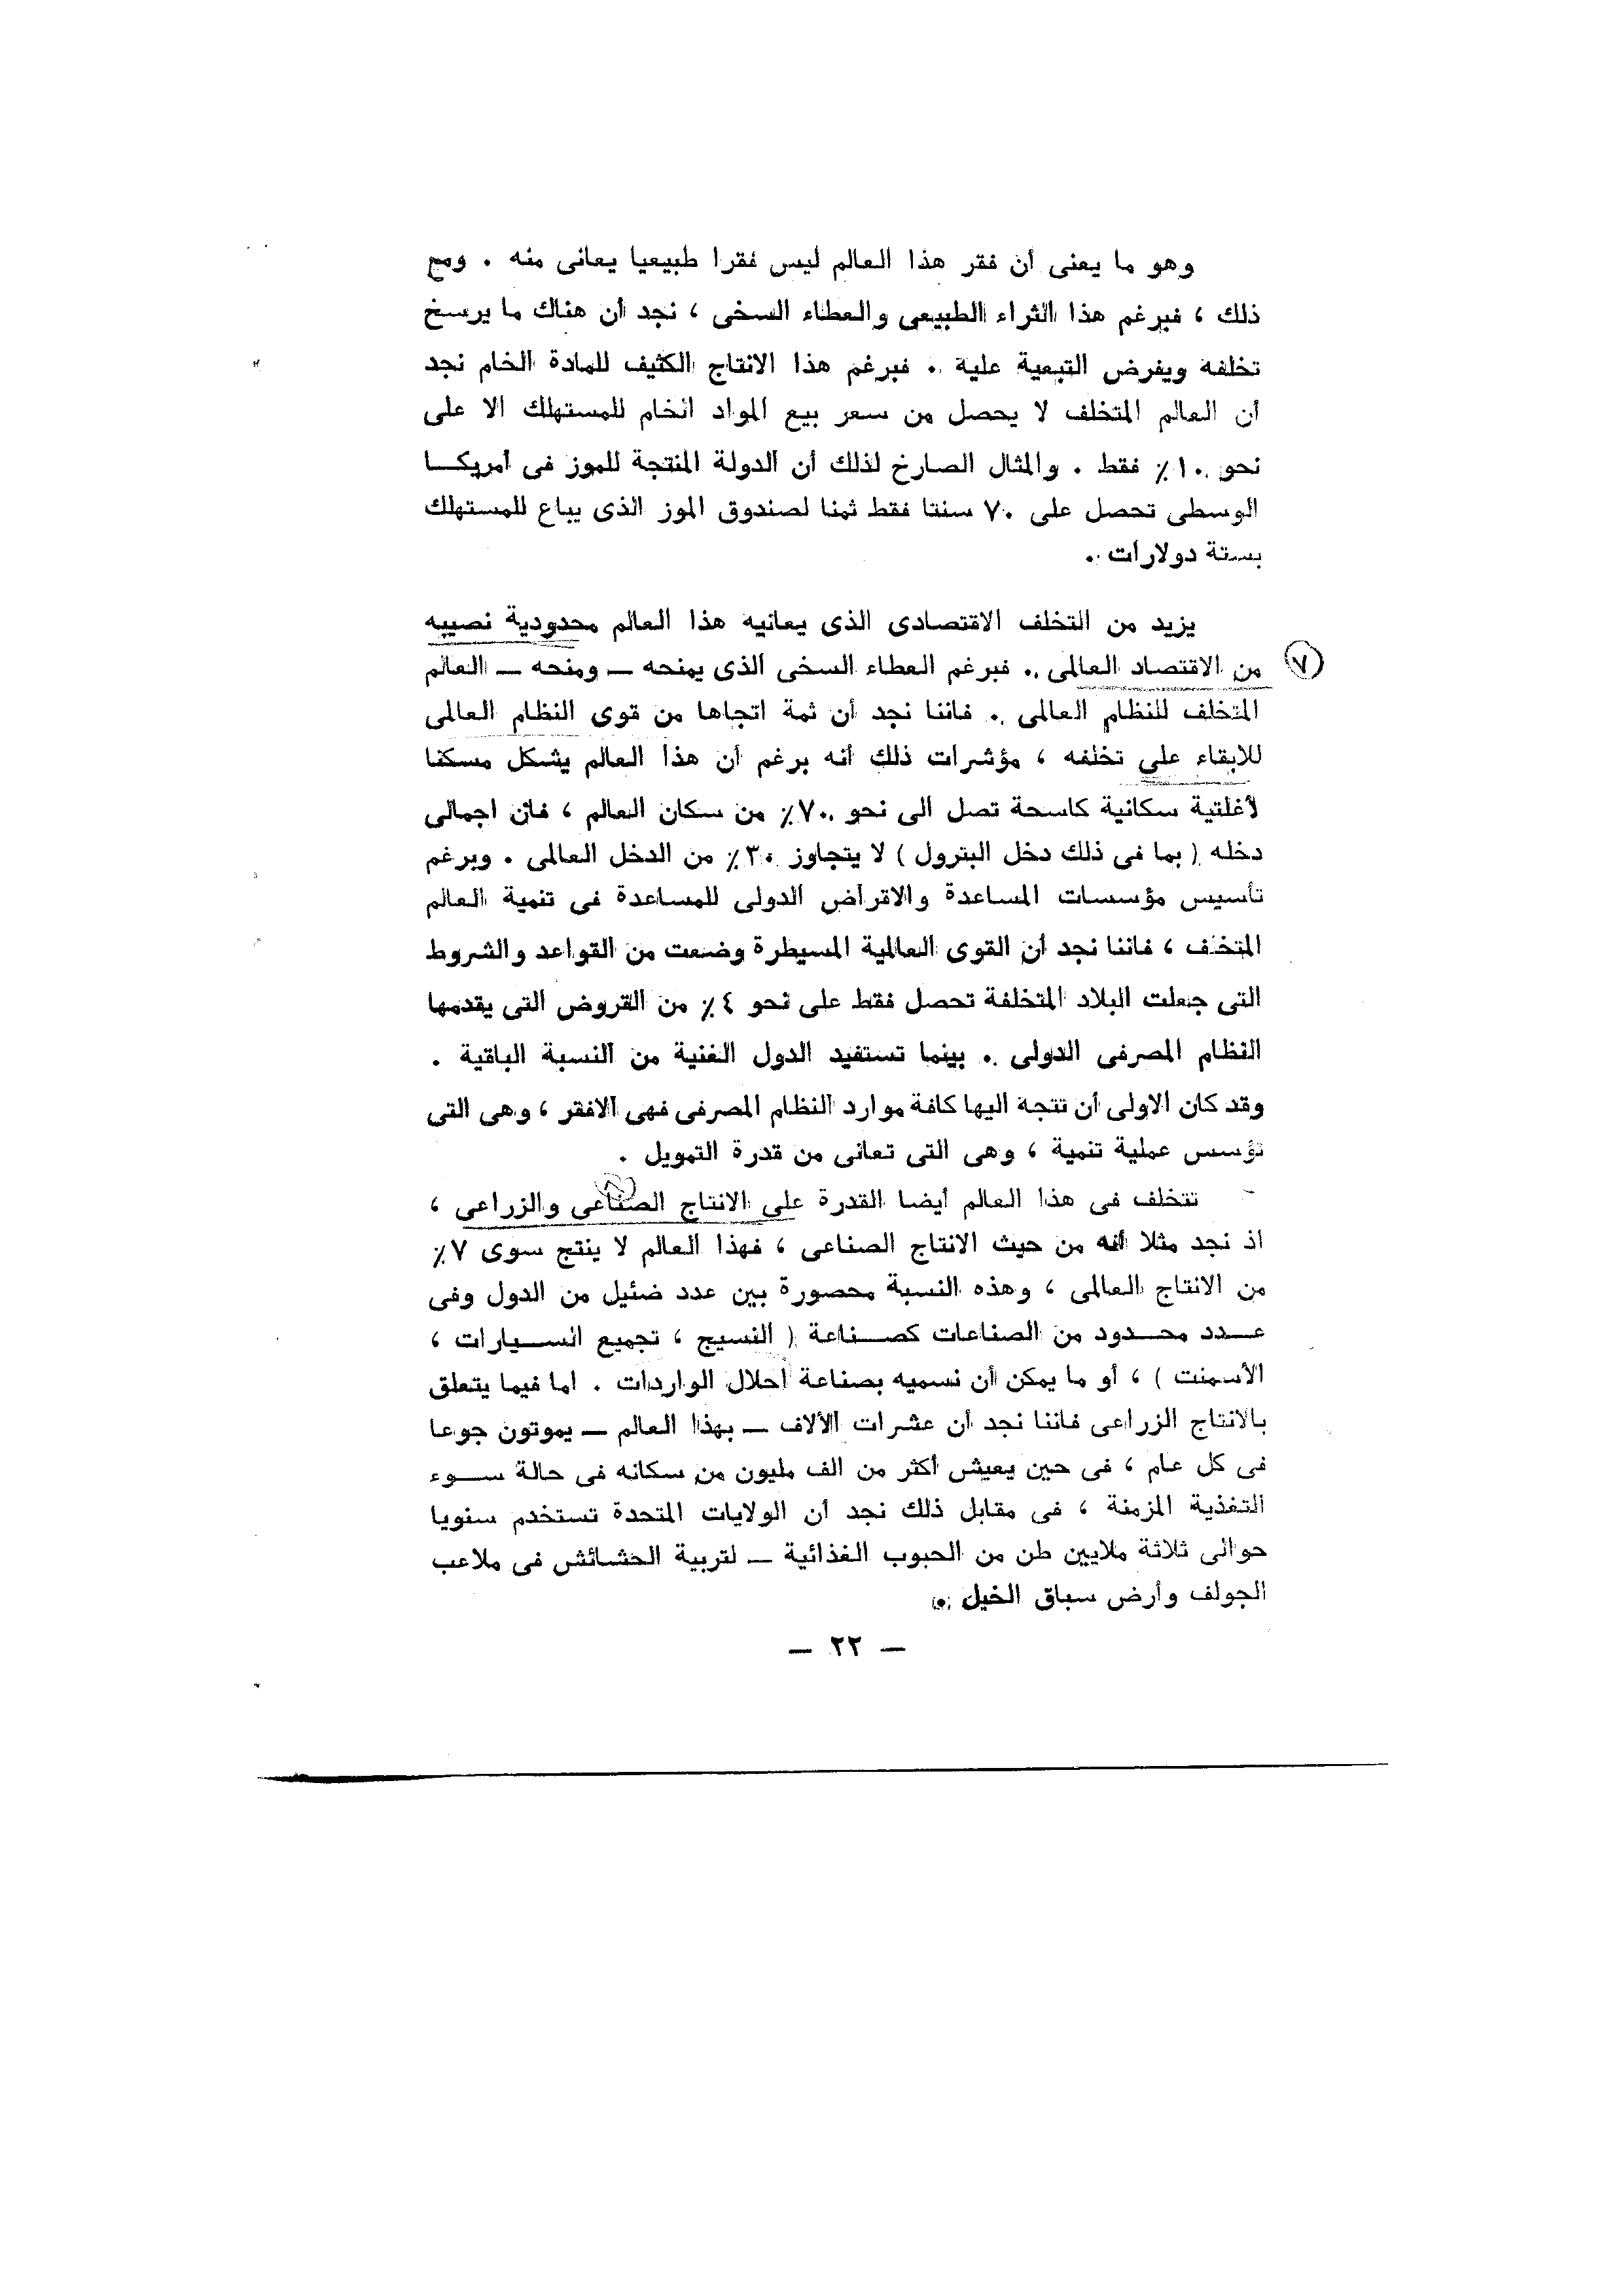 وهو ما يعنى أن فقر هذا العالم ليس فقرا طبيعيا يعانى منه . ومع
ذلك ، فبرغم هذا الثراء الطبيعى والعطاء السخى ، نجد أن هناك ما يرسخ
تخلفه ويفرض التبعية عليه . فبرغم هذا الانتاج الكثيف للمادة الخام نجد
أن العالم المتخلف لا يحصل من سعر بيع المواد الخام للمستهلك الا على
نحو ١٠٪ فقط . والمثال الصارخ لذلك أن الدولة المنتجة للموز فى أمريكــا
الوسطى تحصل على ٧٠ سنتا فقط ثمنا لصندوق الموز الذى يباع للمستهلك
بستة دولارات .
يزيد من التخلف الاقتصادى الذى يعانيه هذا العالم محدودية نصيبه
٧ من الاقتصاد العالمى . فبرغم العطاء السخى الذى يمنحه ــ ومنحه ــ العالم
المتخلف للنظام العالمى . فاننا نجد أن ثمة اتجاها من قوى النظام العالمى
للابقاء على تخلفه ، مؤشرات ذلك أنه برغم أن هذا العالم يشكل مسكنا
لأغلتية سكانية كاسحة تصل الى نحو ٧٠٪ من سكان العالم ، فان اجمالى
دخله ( بما فى ذلك دخل البترول ) لا يتجاوز ٣٠٪ من الدخل العالمى . وبرغم
تأسيس مؤسسات المساعدة والاقراض الدولى للمساعدة فى تنمية العالم
المتخلف ، فاننا نجد أن القوى العالمية المسيطرة وضعت من القواعد والشروط
التى جعلت البلاد المتخلفة تحصل فقط على نحو ٤٪ من القروض التى يقدمها
النظام المصرفى الدولى . بينما تستفيد الدول الغنية من النسبة الباقية .
وقد كان الاولى أن تتجة اليها كافة موارد النظام المصرفى فهى الافقر ، وهى التى
تؤسس عملية تنمية ، وهى التى تعانى من قدرة التمويل .
تتخلف فى هذا العالم أيضا القدرة على الانتاج الصناعى والزراعى ،
اذ نجد مثلا أنه من حيث الانتاج الصناعى ، فهذا العالم لا ينتج سوى ٧٪
من الانتاج العالمى ، وهذه النسبة محصورة بين عدد ضئيل من الدول وفى
عــدد محــدود من الصناعات كصــناعة ( النسيج ، تجميع الســيارات ،
الأسمنت ) ، أو ما يمكن أن نسميه بصناعة احلال الواردات . اما فيما يتعلق
بالانتاج الزراعى فاننا نجد أن عشرات الألاف ــ بهذا العالم ــ يموتون جوعا
فى كل عام ، فى حين يعيش أكثر من الف مليون من سكانه فى حالة ســوء
التغذية المزمنة ، فى مقابل ذلك نجد أن الولايات المتحدة تستخدم سنويا
حوالى ثلاثة ملايين طن من الحبوب الغذائية ــ لتربية الحشائش فى ملاعب
الجولف وأرض سباق الخيل .
ــ ٢٢ ــ